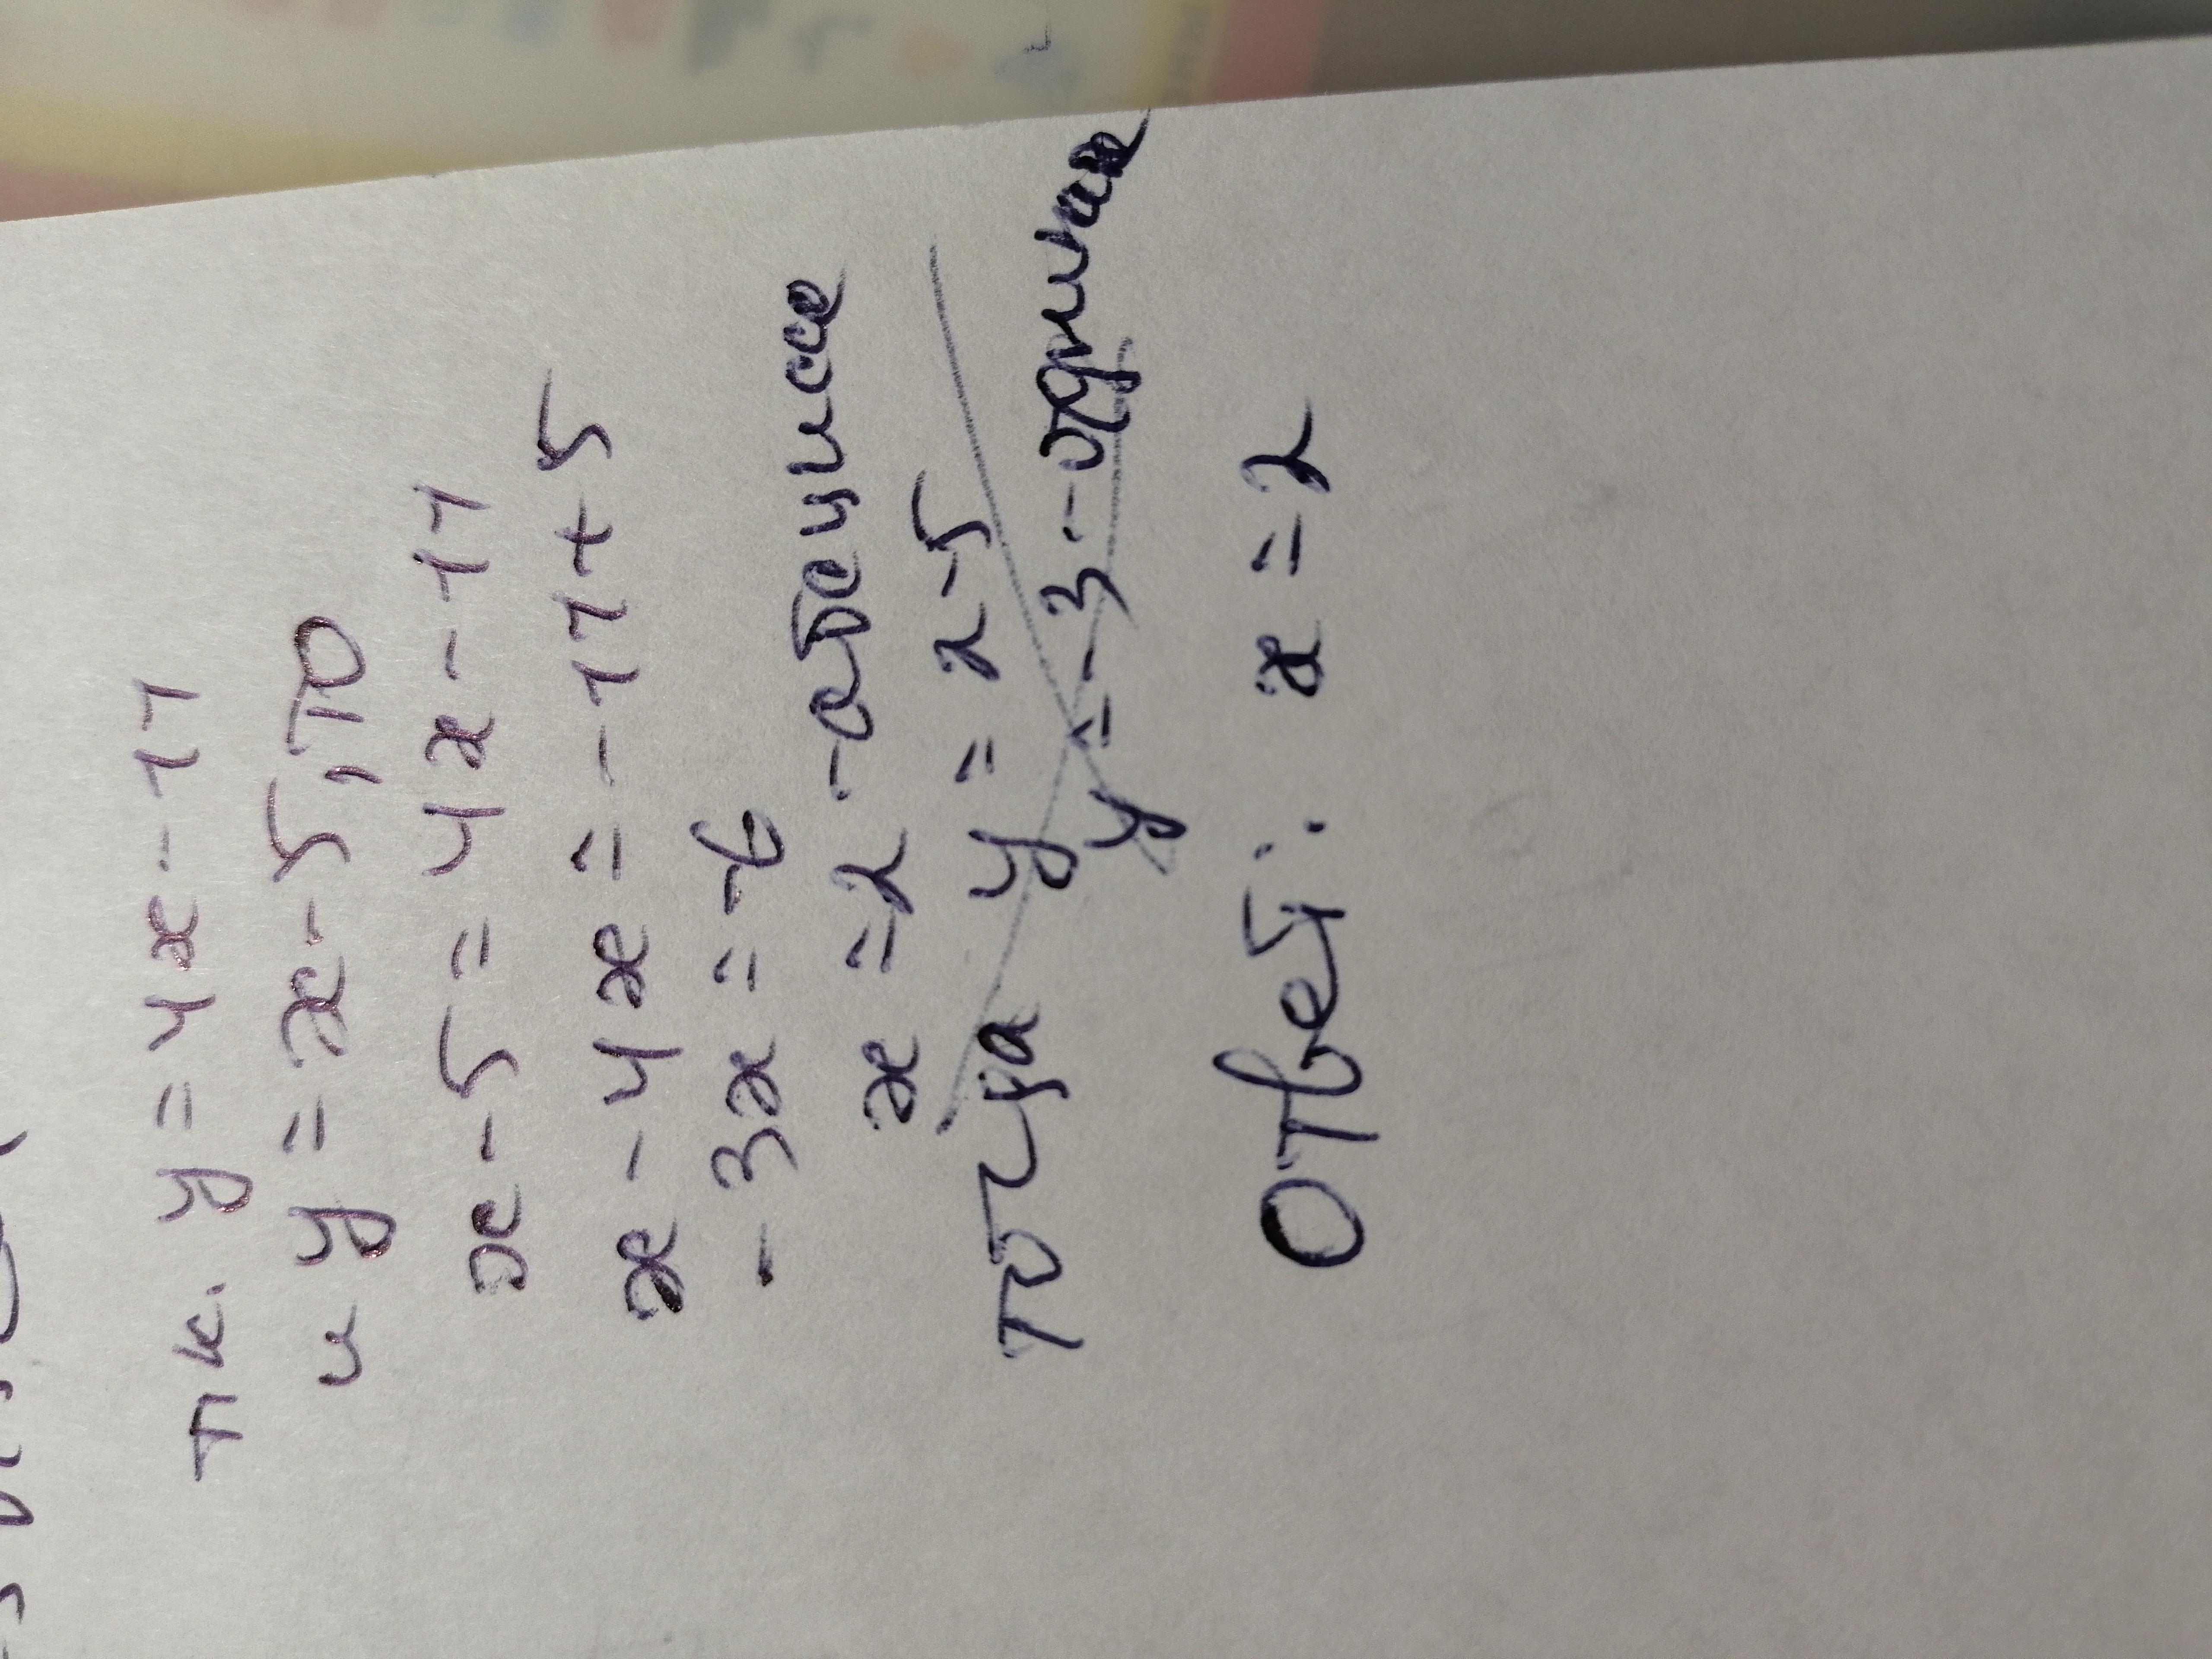 т.к. y = 4x - 11
и y = x - 5, то
x - 5 = 4x - 11
x - 4x = - 11 + 5
- 3x = - 6
x = 2 - абсцисса
Тогда y = 2 - 5
y = - 3 - ордината
Ответ: x = 2